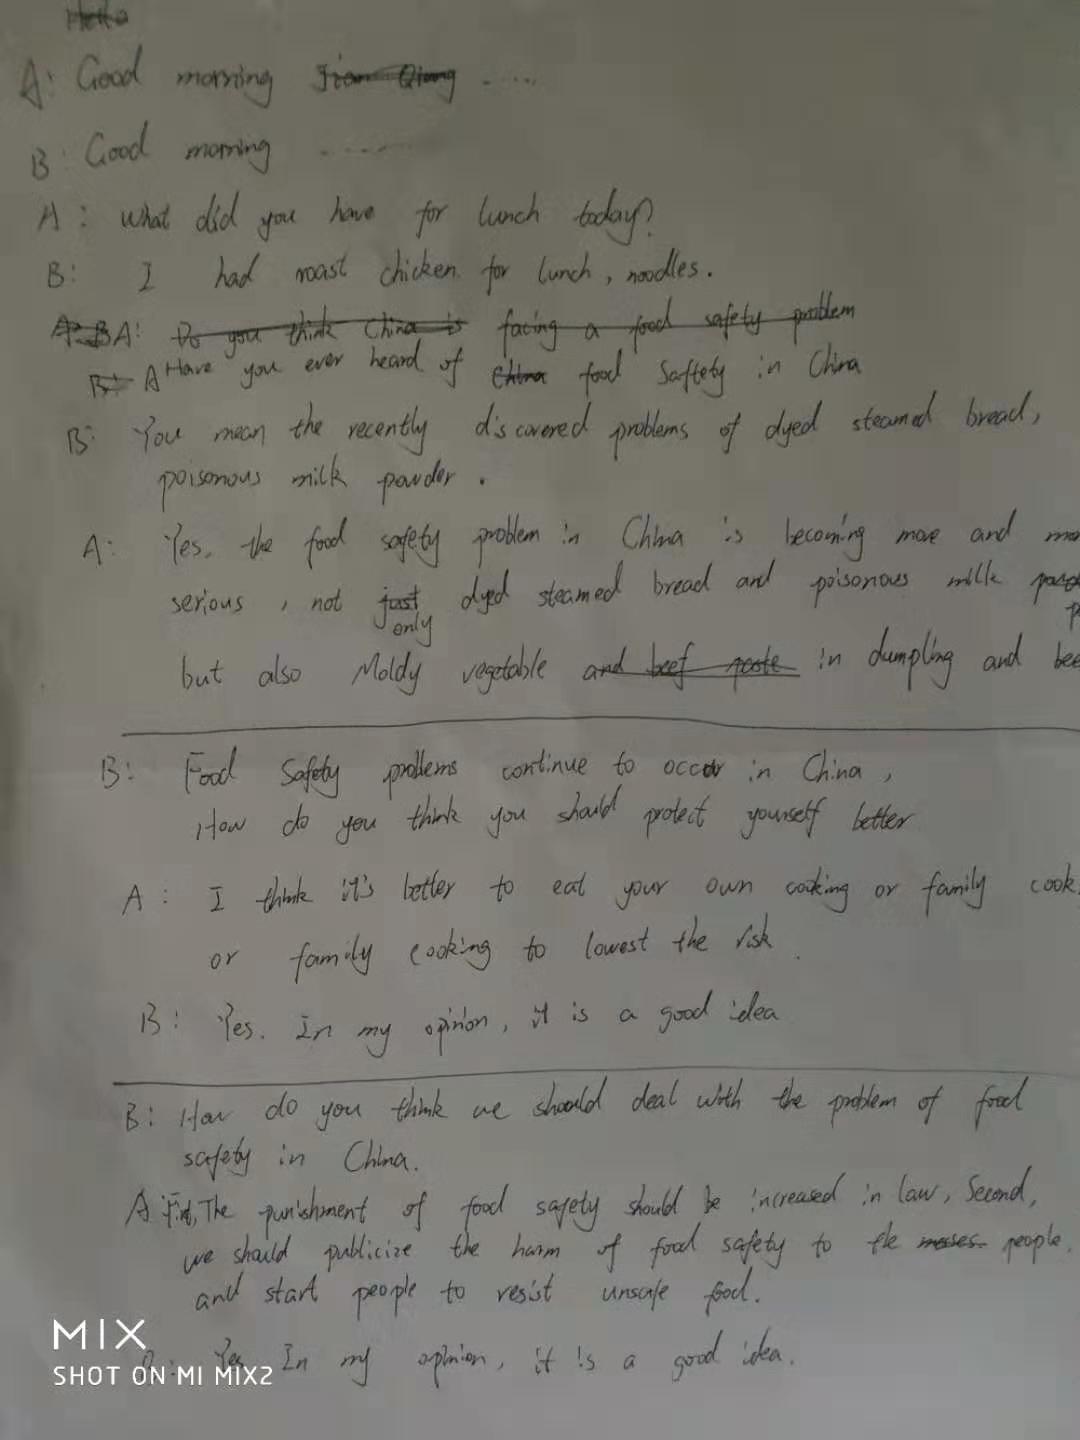 Hello
A: Good morning Jian Qiang .....
B: Good morning ........
A: What did you have for lunch today?
B: I had roast chicken for lunch, noodles.
A: B A: Do you think China is facing a food safety problem
B: A Have you ever heard of China food Saftety in China
B: You mean the recently discovered problems of dyed steamed bread,
poisonous milk powder.
A: Yes, the food safety problem in China is becoming more and
serious, not just dyed steamed bread and poisonous milk
only
but also Moldy vegetable and beef paste in dumpling and
B: Food Safety problems continue to occur in China,
How do you think you should protect yourself better
A: I think it's better to eat your own cooking or family cook
or family cooking to lowest the risk.
B: Yes. In my opinion, it is a good idea
B: How do you think we should deal with the problem of food
safety in China.
A The punishment of food safety should be increased in law, Second,
we should publicize the harm of food safety to the masses people.
and start people to resist unsafe food.
Yes In my opinion, it is a good idea.
MIX
SHOT ON MI MIX2